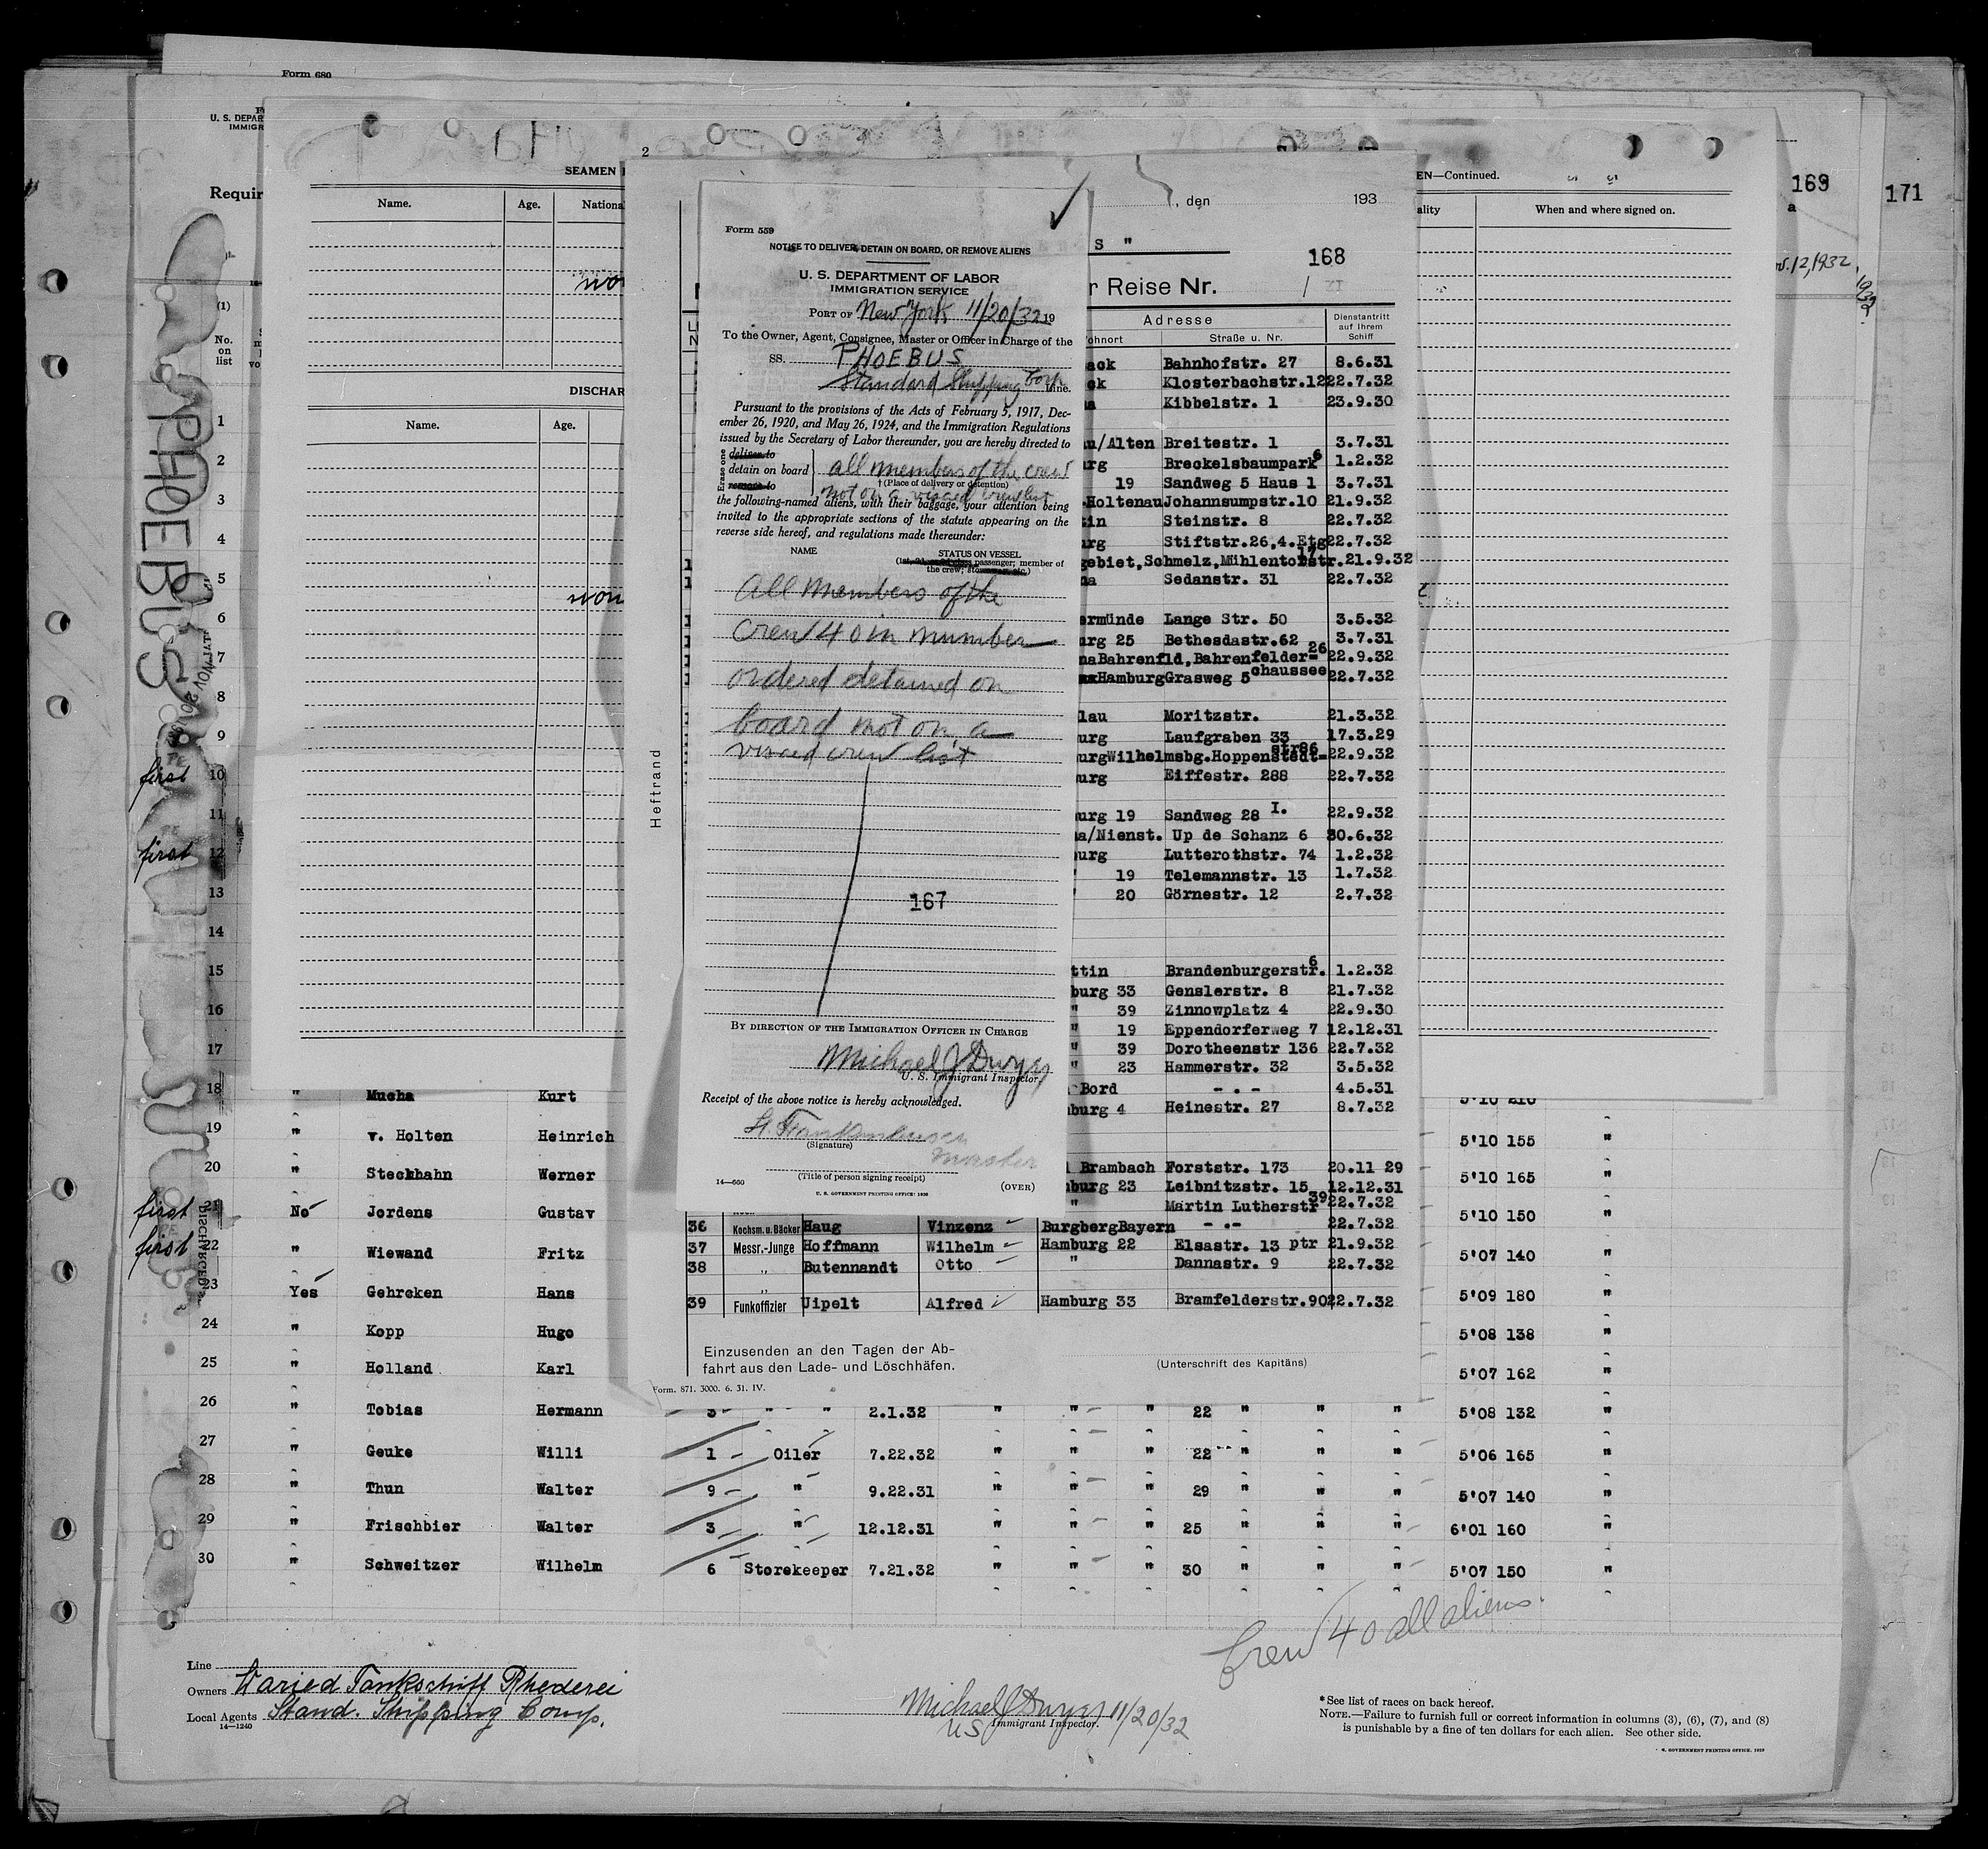 Form 680
U. S. DEPAR
IMMIGR
Requir
(1)
No.
on
list
PHOEBUS
1
2
3
4
5
6
7
8
9
10
11
12
13
14
15
16
17
first
first
2
SEAMEN
Name. Age. Nationa
DISCHAR
Name. Age.
EN—Continued.
ality When and where signed on.
169
a
171
v. 12, 1932
Form 559
NOTICE TO DELIVER, DETAIN ON BOARD, OR REMOVE ALIENS
U. S. DEPARTMENT OF LABOR
IMMIGRATION SERVICE
PORT OF New York 11/20/32 19
To the Owner, Agent, Consignee, Master or Officer in Charge of the
SS. PHOEBUS
Standard Shipping Corp Line.
Pursuant to the provisions of the Acts of February 5, 1917, Dec-
ember 26, 1920, and May 26, 1924, and the Immigration Regulations
issued by the Secretary of Labor thereunder, you are hereby directed to
Erase one
deliver to
detain on board
remove to
all members of the crew
† (Place of delivery or detention)
not on a visaed crew list
the following-named aliens, with their baggage, your attention being
invited to the appropriate sections of the statute appearing on the
reverse side hereof, and regulations made thereunder:
NAME STATUS ON VESSEL
(1st, 2d, or 3d class passenger; member of
the crew; stowaway, etc.)
All members of the
crew 40 in number
ordered detained on
board not on a
visaed crew list
167
BY DIRECTION OF THE IMMIGRATION OFFICER IN CHARGE
Michael J Dwyer
U. S. Immigrant Inspector
Receipt of the above notice is hereby acknowledged.
(Signature)
Master
(Title of person signing receipt)
14—660
U. S. GOVERNMENT PRINTING OFFICE: 1930
(OVER)
, den 193
S "
168
r Reise Nr.
Adresse Dienstantritt
auf Ihrem
Schiff
ohnort Straße u. Nr.
ack Bahnhofstr. 27 8.6.31
ck Klosterbachstr.12 22.7.32
na Kibbelstr. 1 23.9.30
u/Alten Breitestr. 1 3.7.31
urg Breckelsbaumpark 6 1.2.32
19 Sandweg 5 Haus 1 3.7.31
.Holtenau Johannsumpstr.10 21.9.32
tin Steinstr. 8 22.7.32
urg Stiftstr.26,4.Etg 22.7.32
gebiet,Schmelz,Mühlentorstr. 17 21.9.32
na Sedanstr. 31 22.7.32
ermünde Lange Str. 50 3.5.32
urg 25 Bethesdastr.62 3.7.31
naBahrenfld,Bahrenfelder= 26 22.9.32
chaussee
HamburgGrasweg 5 22.7.32
lau Moritzstr. 21.3.32
urg Laufgraben 33 17.3.29
urgWilhelmsbg.Hoppenstedt= str86 22.9.32
urg Eiffestr. 288 22.7.32
urg 19 Sandweg 28 I. 22.9.32
na/Nienst. Up de Schanz 6 30.6.32
burg Lutterothstr. 74 1.2.32
" 19 Telemannstr. 13 1.7.32
20 Görnestr. 12 2.7.32
ttin Brandenburgerstr. 6 1.2.32
burg 33 Genslerstr. 8 21.7.32
" 39 Zinnowplatz 4 22.9.30
" 19 Eppendorferweg 7 12.12.31
" 39 Dorotheenstr 136 22.7.32
" 23 Hammerstr. 32 3.5.32
Bord - . - 4.5.31
burg 4 Heinestr. 27 8.7.32
Brambach Forststr. 173 20.11 29
burg 23 Leibnitzstr. 15 12.12.31
" Martin Lutherstr 39 22.7.32
36 Kochsm. u. Bäcker Haug Vinzenz BurgbergBayern - .- 22.7.32
37 Messr.-Junge Hoffmann Wilhelm Hamburg 22 Elsastr. 13 ptr 21.9.32
38 " Butennandt Otto " Dannastr. 9 22.7.32
39 Funkoffizier Uipelt Alfred Hamburg 33 Bramfelderstr.90 22.7.32
Heftrand
Einzusenden an den Tagen der Ab-
fahrt aus den Lade- und Löschhäfen.
(Unterschrift des Kapitäns)
Form. 871. 3000. 6. 31. IV.
18 " Mucha Kurt 5'10 210
19 " v. Holten Heinrich 5'10 155 "
20 " Steckhahn Werner 5'10 165 "
first 21 No Jordens Gustav 5'10 150 "
first 22 " Wiewand Fritz 5'07 140 "
DISCHARGED
23 Yes Gehrcken Hans 5'09 180 "
24 " Kopp Hugo 5'08 138 "
25 " Holland Karl 5'07 162 "
26 " Tobias Hermann 3 " " 2.1.32 " " " 22 " " " 5'08 132 "
27 " Geuke Willi 1 Oiler 7.22.32 " " " 22 " " " 5'06 165 "
28 " Thun Walter 9 " 9.22.31 " " " 29 " " " 5'07 140 "
29 " Frischbier Walter 3 " 12.12.31 " " " 25 " " " 6'01 160 "
30 " Schweitzer Wilhelm 6 Storekeeper 7.21.32 " " " 30 " " " 5'07 150 "
Crew 40 all aliens.
Line
Owners Waried Tankschiff Rhederei
Local Agents Stand. Shipping Comp.
14—1240
Michael J Dwyer 11/20/32
US Immigrant Inspector.
*See list of races on back hereof.
NOTE.—Failure to furnish full or correct information in columns (3), (6), (7), and (8)
is punishable by a fine of ten dollars for each alien. See other side.
U. S. GOVERNMENT PRINTING OFFICE. 1929